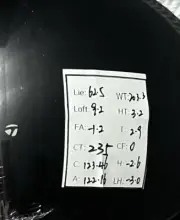 Lie: 62.5 WT: 203.3
Loft: 9.2 HT: 3.2
FA: -1.2 I 2.9
CT: 235 CF: 0
C: 123.40 H -2.6
A: 122.16 LH: -3.0